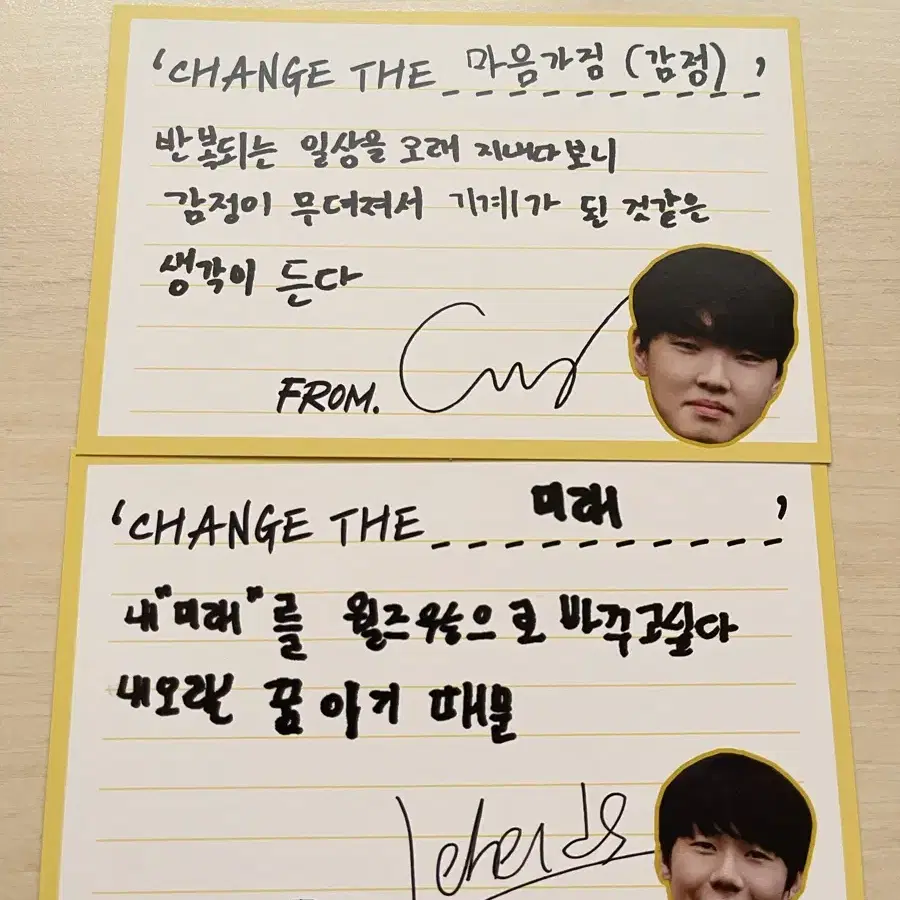 'CHANGE THE 마음가짐 (감정)'
반복되는 일상을 오래 지내다보니
감정이 무뎌져서 기계가 된 것같은
생각이 든다
FROM.
'CHANGE THE 미래'
내 "미래"를 월즈우승으로 바꾸고싶다
내오랜 꿈 이기 때문